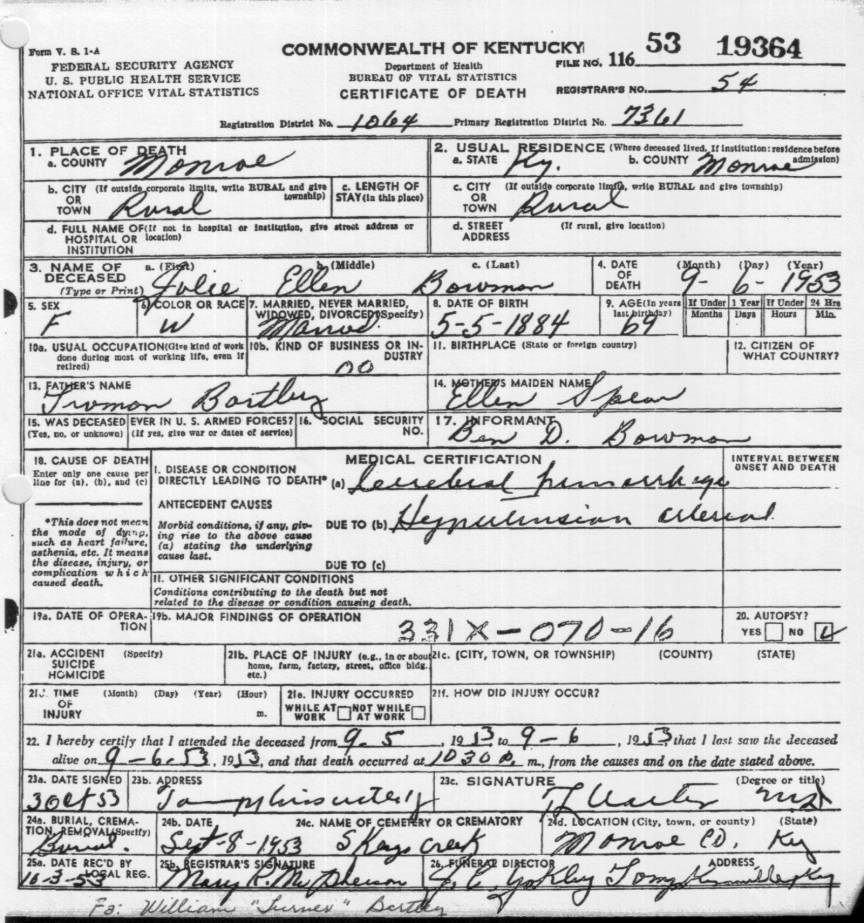 Form V. S. 1-A
FEDERAL SECURITY AGENCY
U. S. PUBLIC HEALTH SERVICE
NATIONAL OFFICE VITAL STATISTICS
COMMONWEALTH OF KENTUCKY
Department of Health
BUREAU OF VITAL STATISTICS
CERTIFICATE OF DEATH
FILE NO. 116 53 19364
REGISTRAR'S NO. 54
Registration District No. 1064 Primary Registration District No. 7361
1. PLACE OF DEATH
a. COUNTY Monroe
2. USUAL RESIDENCE (Where deceased lived. If institution: residence before admission)
a. STATE Ky. b. COUNTY Monroe
b. CITY (If outside corporate limits, write RURAL and give township)
OR
TOWN Rural
c. LENGTH OF
STAY (in this place)
c. CITY (If outside corporate limits, write RURAL and give township)
OR
TOWN Rural
d. FULL NAME OF (If not in hospital or institution, give street address or location)
HOSPITAL OR
INSTITUTION
d. STREET (If rural, give location)
ADDRESS
3. NAME OF DECEASED
(Type or Print)
a. (First) b. (Middle) c. (Last)
Julie Ellen Bowman
4. DATE OF DEATH (Month) (Day) (Year)
9- 6- 1953
5. SEX
F
6. COLOR OR RACE
W
7. MARRIED, NEVER MARRIED,
WIDOWED, DIVORCED (Specify)
8. DATE OF BIRTH
5-5-1884
9. AGE (In years last birthday)
69
If Under 1 Year
Months Days
If Under 24 Hrs
Hours Min.
10a. USUAL OCCUPATION (Give kind of work done during most of working life, even if retired)
10b. KIND OF BUSINESS OR INDUSTRY
00
11. BIRTHPLACE (State or foreign country)
12. CITIZEN OF WHAT COUNTRY?
13. FATHER'S NAME
Truman Bartley
14. MOTHER'S MAIDEN NAME
Ellen Spear
15. WAS DECEASED EVER IN U. S. ARMED FORCES?
(Yes, no, or unknown) (If yes, give war or dates of service)
16. SOCIAL SECURITY NO.
17. INFORMANT
Ben D. Bowman
18. CAUSE OF DEATH
Enter only one cause per line for (a), (b), and (c)
*This does not mean the mode of dying, such as heart failure, asthenia, etc. It means the disease, injury, or complication which caused death.
MEDICAL CERTIFICATION
INTERVAL BETWEEN ONSET AND DEATH
I. DISEASE OR CONDITION
DIRECTLY LEADING TO DEATH* (a) Cerebral hemorrhage
ANTECEDENT CAUSES
Morbid conditions, if any, giving rise to the above cause (a) stating the underlying cause last.
DUE TO (b) Hypertension arterial
DUE TO (c)
II. OTHER SIGNIFICANT CONDITIONS
Conditions contributing to the death but not related to the disease or condition causing death.
19a. DATE OF OPERATION
19b. MAJOR FINDINGS OF OPERATION
331X-070-16
20. AUTOPSY?
YES NO
21a. ACCIDENT (Specify)
SUICIDE
HOMICIDE
21b. PLACE OF INJURY (e.g., in or about home, farm, factory, street, office bldg. etc.)
21c. (CITY, TOWN, OR TOWNSHIP) (COUNTY) (STATE)
21d. TIME (Month) (Day) (Year) (Hour)
OF
INJURY m.
21e. INJURY OCCURRED
WHILE AT WORK NOT WHILE AT WORK
21f. HOW DID INJURY OCCUR?
22. I hereby certify that I attended the deceased from 9-5, 1953 to 9-6, 1953 that I last saw the deceased
alive on 9-6-53, 1953, and that death occurred at 1030 m., from the causes and on the date stated above.
23a. DATE SIGNED
3 Oct 53
23b. ADDRESS
23c. SIGNATURE (Degree or title)
MD
24a. BURIAL, CREMATION, REMOVAL (Specify)
Burial.
24b. DATE
Sept-8-1953
24c. NAME OF CEMETERY OR CREMATORY
Creek
24d. LOCATION (City, town, or county) (State)
Monroe CO. Ky
25a. DATE REC'D BY LOCAL REG.
10-3-53
25b. REGISTRAR'S SIGNATURE
Mary R. McPherson
26. FUNERAL DIRECTOR ADDRESS
Ky
Fa: William "Turner" Bartley